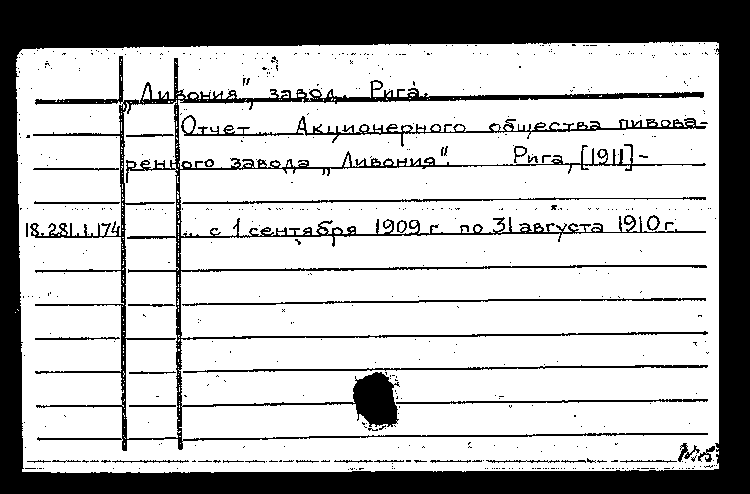 „Ливония", завод. Рига.
Отчет ... Акционерного общества пивова-
ренного завода „Ливония". Рига, [1911] -
18.281.1.174 ... с 1 сентября 1909 г. по 31 августа 1910 г.